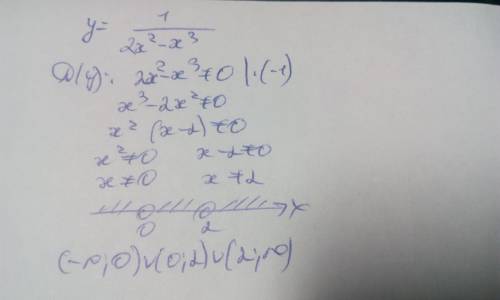 y = 1 / (2x² - x³)
D(y): 2x² - x³ ≠ 0 | · (-1)
x³ - 2x² ≠ 0
x² (x - 2) ≠ 0
x² ≠ 0 x - 2 ≠ 0
x ≠ 0 x ≠ 2
0 2 x
(-∞; 0) ∪ (0; 2) ∪ (2; ∞)